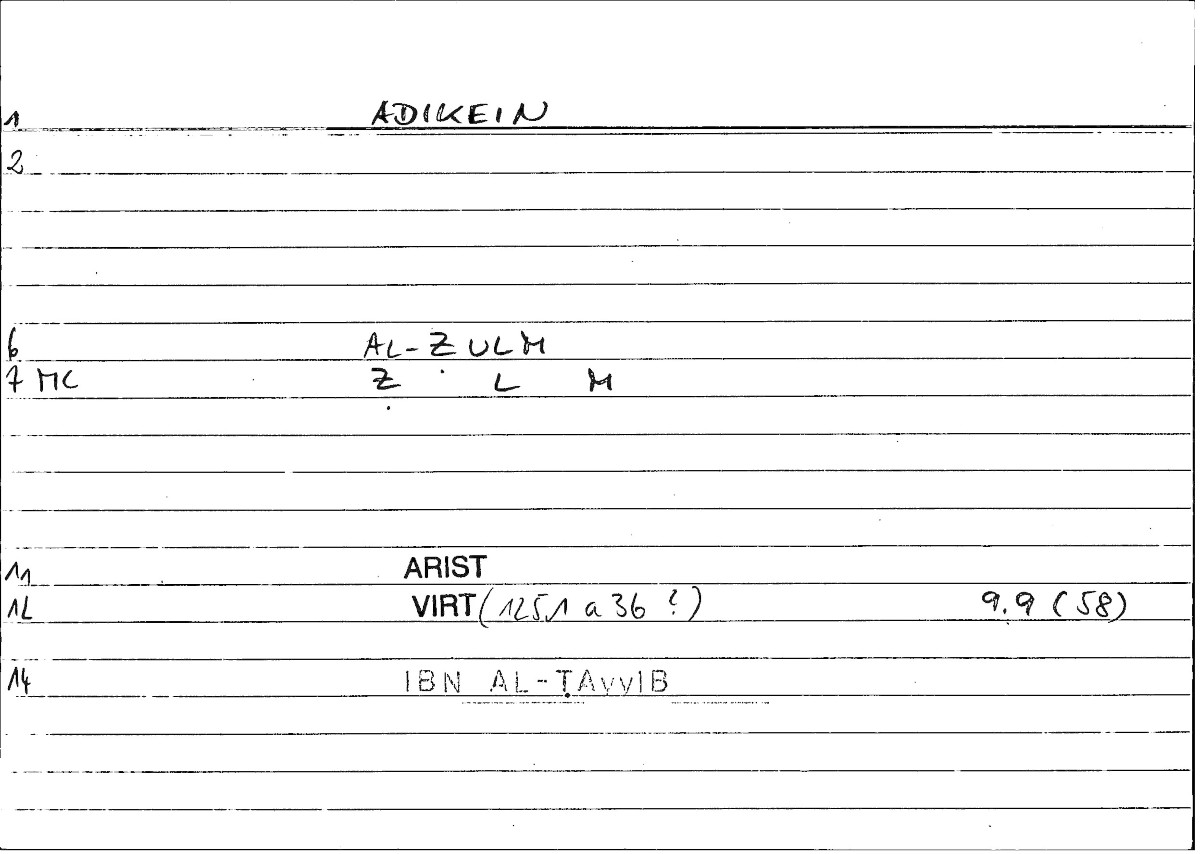 1 ADIKEIN
2
6 AL-ẒULM
7 MC Ẓ L M
11 ARIST
12 VIRT (1251 a 36 ?) 9.9 (58)
14 IBN AL-ṬAyyIB